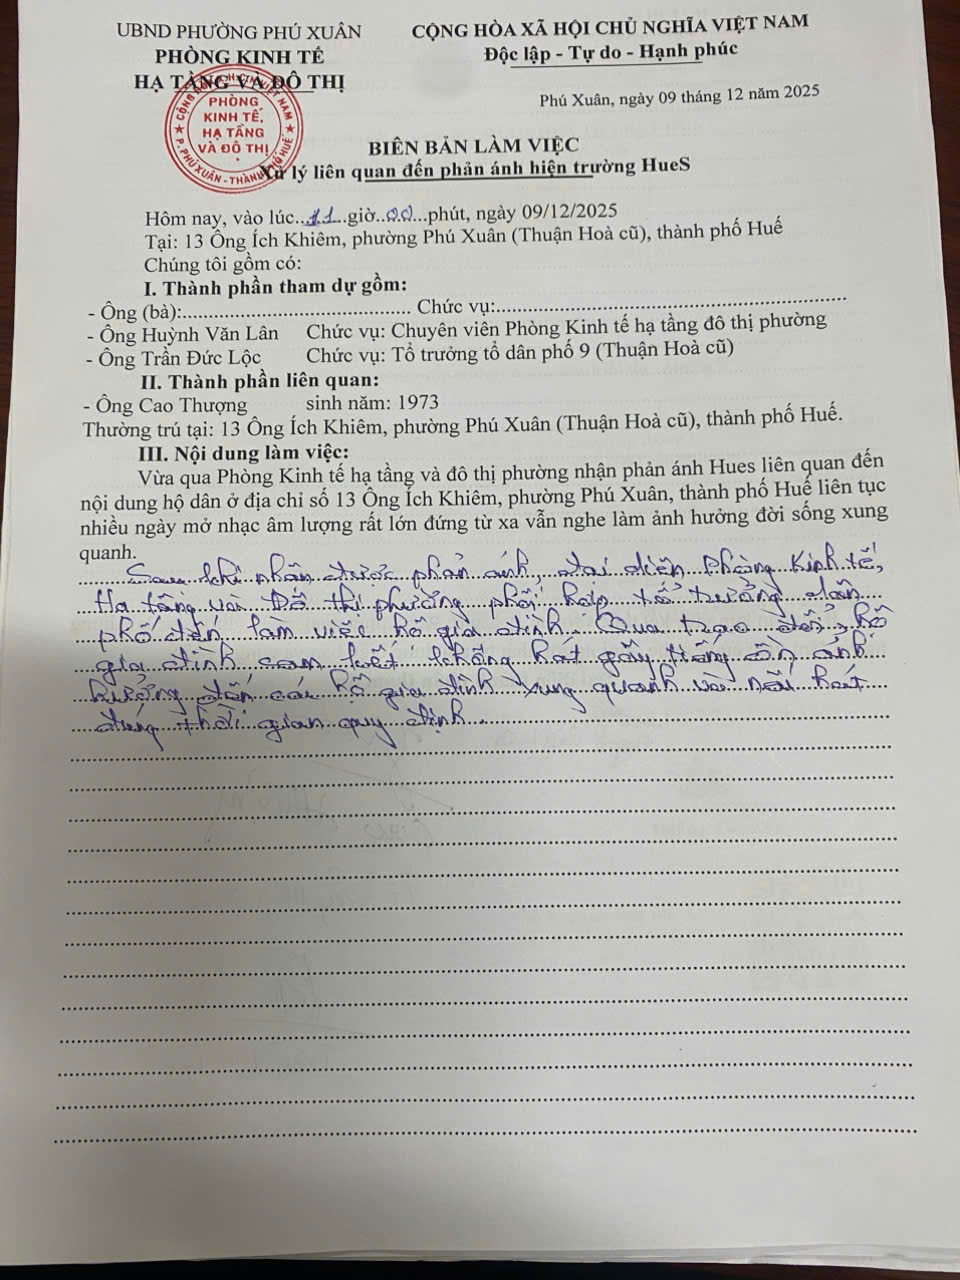 UBND PHƯỜNG PHÚ XUÂN
PHÒNG KINH TẾ
HẠ TẦNG VÀ ĐÔ THỊ
CỘNG HÒA XÃ HỘI CHỦ NGHĨA VIỆT NAM
Độc lập - Tự do - Hạnh phúc
Phú Xuân, ngày 09 tháng 12 năm 2025
PHÒNG
KINH TẾ,
HẠ TẦNG
VÀ ĐÔ THỊ
P. PHÚ XUÂN - THÀNH PHỐ HUẾ
BIÊN BẢN LÀM VIỆC
Xử lý liên quan đến phản ánh hiện trường HueS
Hôm nay, vào lúc...11...giờ...00...phút, ngày 09/12/2025
Tại: 13 Ông Ích Khiêm, phường Phú Xuân (Thuận Hoà cũ), thành phố Huế
Chúng tôi gồm có:
I. Thành phần tham dự gồm:
- Ông (bà):.......... Chức vụ:..........
- Ông Huỳnh Văn Lân Chức vụ: Chuyên viên Phòng Kinh tế hạ tầng đô thị phường
- Ông Trần Đức Lộc Chức vụ: Tổ trưởng tổ dân phố 9 (Thuận Hoà cũ)
II. Thành phần liên quan:
- Ông Cao Thượng sinh năm: 1973
Thường trú tại: 13 Ông Ích Khiêm, phường Phú Xuân (Thuận Hoà cũ), thành phố Huế.
III. Nội dung làm việc:
Vừa qua Phòng Kinh tế hạ tầng và đô thị phường nhận phản ánh Hues liên quan đến
nội dung hộ dân ở địa chỉ số 13 Ông Ích Khiêm, phường Phú Xuân, thành phố Huế liên tục
nhiều ngày mở nhạc âm lượng rất lớn đứng từ xa vẫn nghe làm ảnh hưởng đời sống xung
quanh.
Sau khi nhận được phản ánh, đại diện Phòng Kinh tế,
Hạ tầng và Đô thị phường phối hợp tổ trưởng dân
phố đến làm việc hộ gia đình. Qua trao đổi, hộ
gia đình cam kết không hát gây tiếng ồn ảnh
hưởng đến các hộ gia đình xung quanh và nếu hát
đúng thời gian quy định.